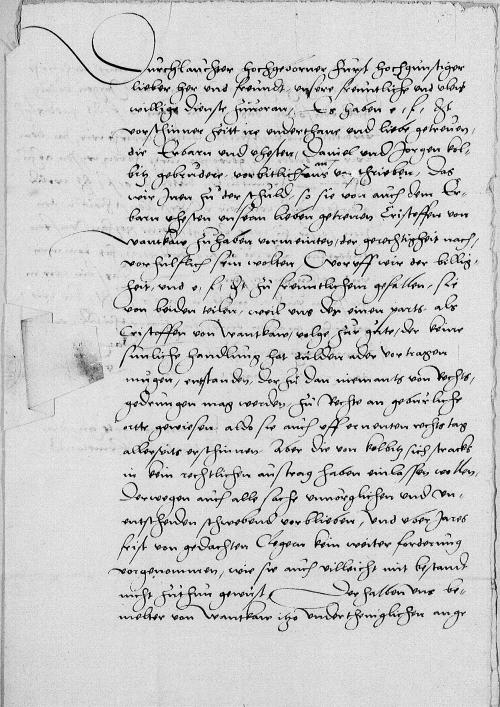 Durchlauchter hochgeborner furst hochgunstiger
lieber her und freundt, unsere freuntliche und ubir
willige dienste zuvoran, Es haben e. f. gt
vorschinner zeitt ire underthane und liebe getreuen,
die Erbarn und vhesten, Daniel und Jorgen kol-
bitz gebrudere, vorbitlich an uns geschrieben, das
wir Inen zu der schuld, so sie von auch dem Er-
barn vhesten unserm lieben getreuen Cristoffen von
wantkaw zuhaben vormeinten, der gerechtigkeit nach,
vorhulfflich sein wolten Woruff wir der billig-
heit, und e. f. gt zu freuntlichem gefallen, sie
von beiden teilen, weil uns der einen parts als
Cristoffen von wantkaw, volge zur gute, der keine
sunliche handlung hat dulden ader vortragen
mugen, entstanden, der zu dan niemants von Rechts,
gedrungen mag werden, zu Rechte an geburliche
ortte gewiesen, aldo sie auch uff ernenten rechts tag
allersyts erschinnen Aber die von kolbitz sich stracks
in kein rechtlichen austrag haben einlassen wollen,
Derwegen auch alle sache unvorglichen und un-
entscheiden schwebend vorblieben, und uber Jares
frist von gedachten Clegern kein weiter forderung
vorgenommen, wie sie auch villeicht mit bestand
nicht zuthun gewust Derhalben uns be-
melter von wantkaw itzo undertheniglichen ange